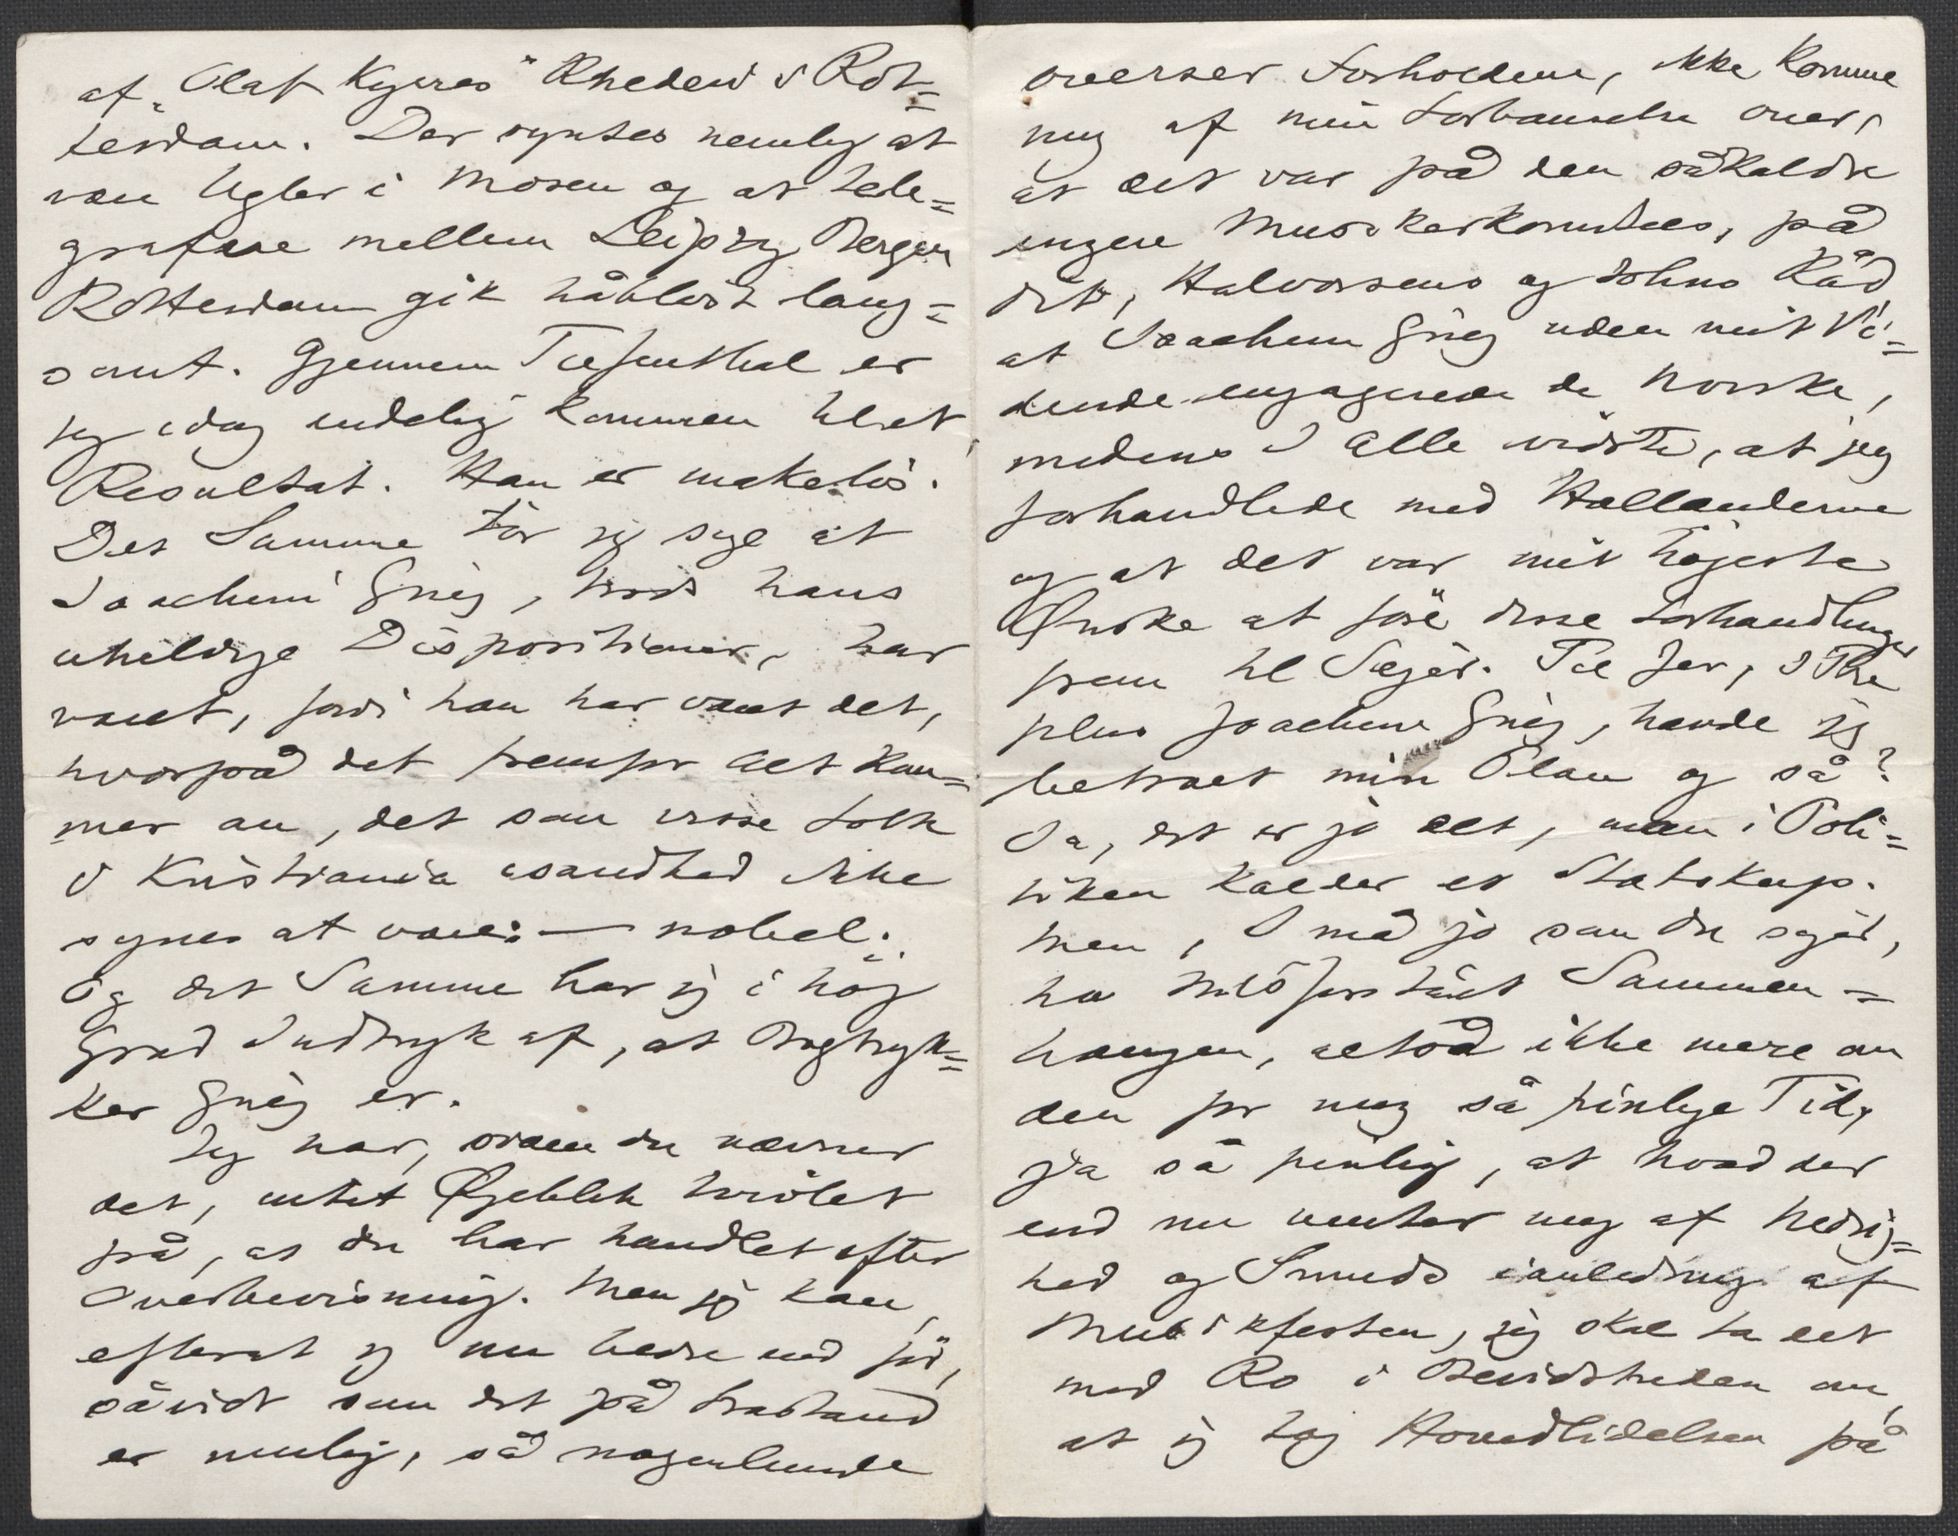 af „Olaf Kyrres" Rhederi i Rot=
terdam. Der syntes nemlig at
være Ugler i Mosen og at tele=
grafere mellem Leipzig, Bergen
Rotterdam gik håbløst lang=
somt. Gjennem Tiefenthal er
jeg idag endelig kommen til et
Resultat. Han er makeløs.
Det Samme tör jeg sige at
Joachim Grieg, trods hans
uheldige Dispositioner, har
været, fordi han har været det,
hvorpå det fremfor Alt kom=
mer an, det som visse Folk
i Kristiania isandhed ikke
synes at være: — nobel.
Og det Samme har jeg i höj
Grad Indtryk af, at Bogtryk=
ker Grieg er.
Jeg har, siden du nævner
det, intet Øjeblik tvivlet
på, at du har handlet efter
Overbevisning. Men jeg kan,
efterat jeg nu bedre end för,
såvidt som det på Frastand
er mulig, så nogenlunde
overser Forholdene, ikke komme
mig af min Forbauselse over,
at det var på den såkaldte
yngere Musikerkomitees, på
dit, Halvorsens og Johns Råd
at Joachim Grieg uden mit Vi=
dende engagerede de Norske,
medens I Alle vidste, at jeg
forhandlede med Hollænderne
og at det var mit höjeste
Ønske at före disse Forhandlinger
frem til Sejer. Til Jer, I Tre
plus Joachim Grieg, havde jeg
betroet min Plan og så?
Ja, det er jo det, man i Poli=
tiken kalder et Statskup.
Men, I må jo som du siger,
ha misforstået Sammen=
hængen, altså ikke mere om
den for mig så pinlige Tid,
ja så pinlig, at hvad der
end nu venter mig af Nedrig=
hed og Smuds ianledning af
Musikfesten, jeg skal ta det
med Ro i Bevidstheden om,
at jeg tog Hovedlidelsen på